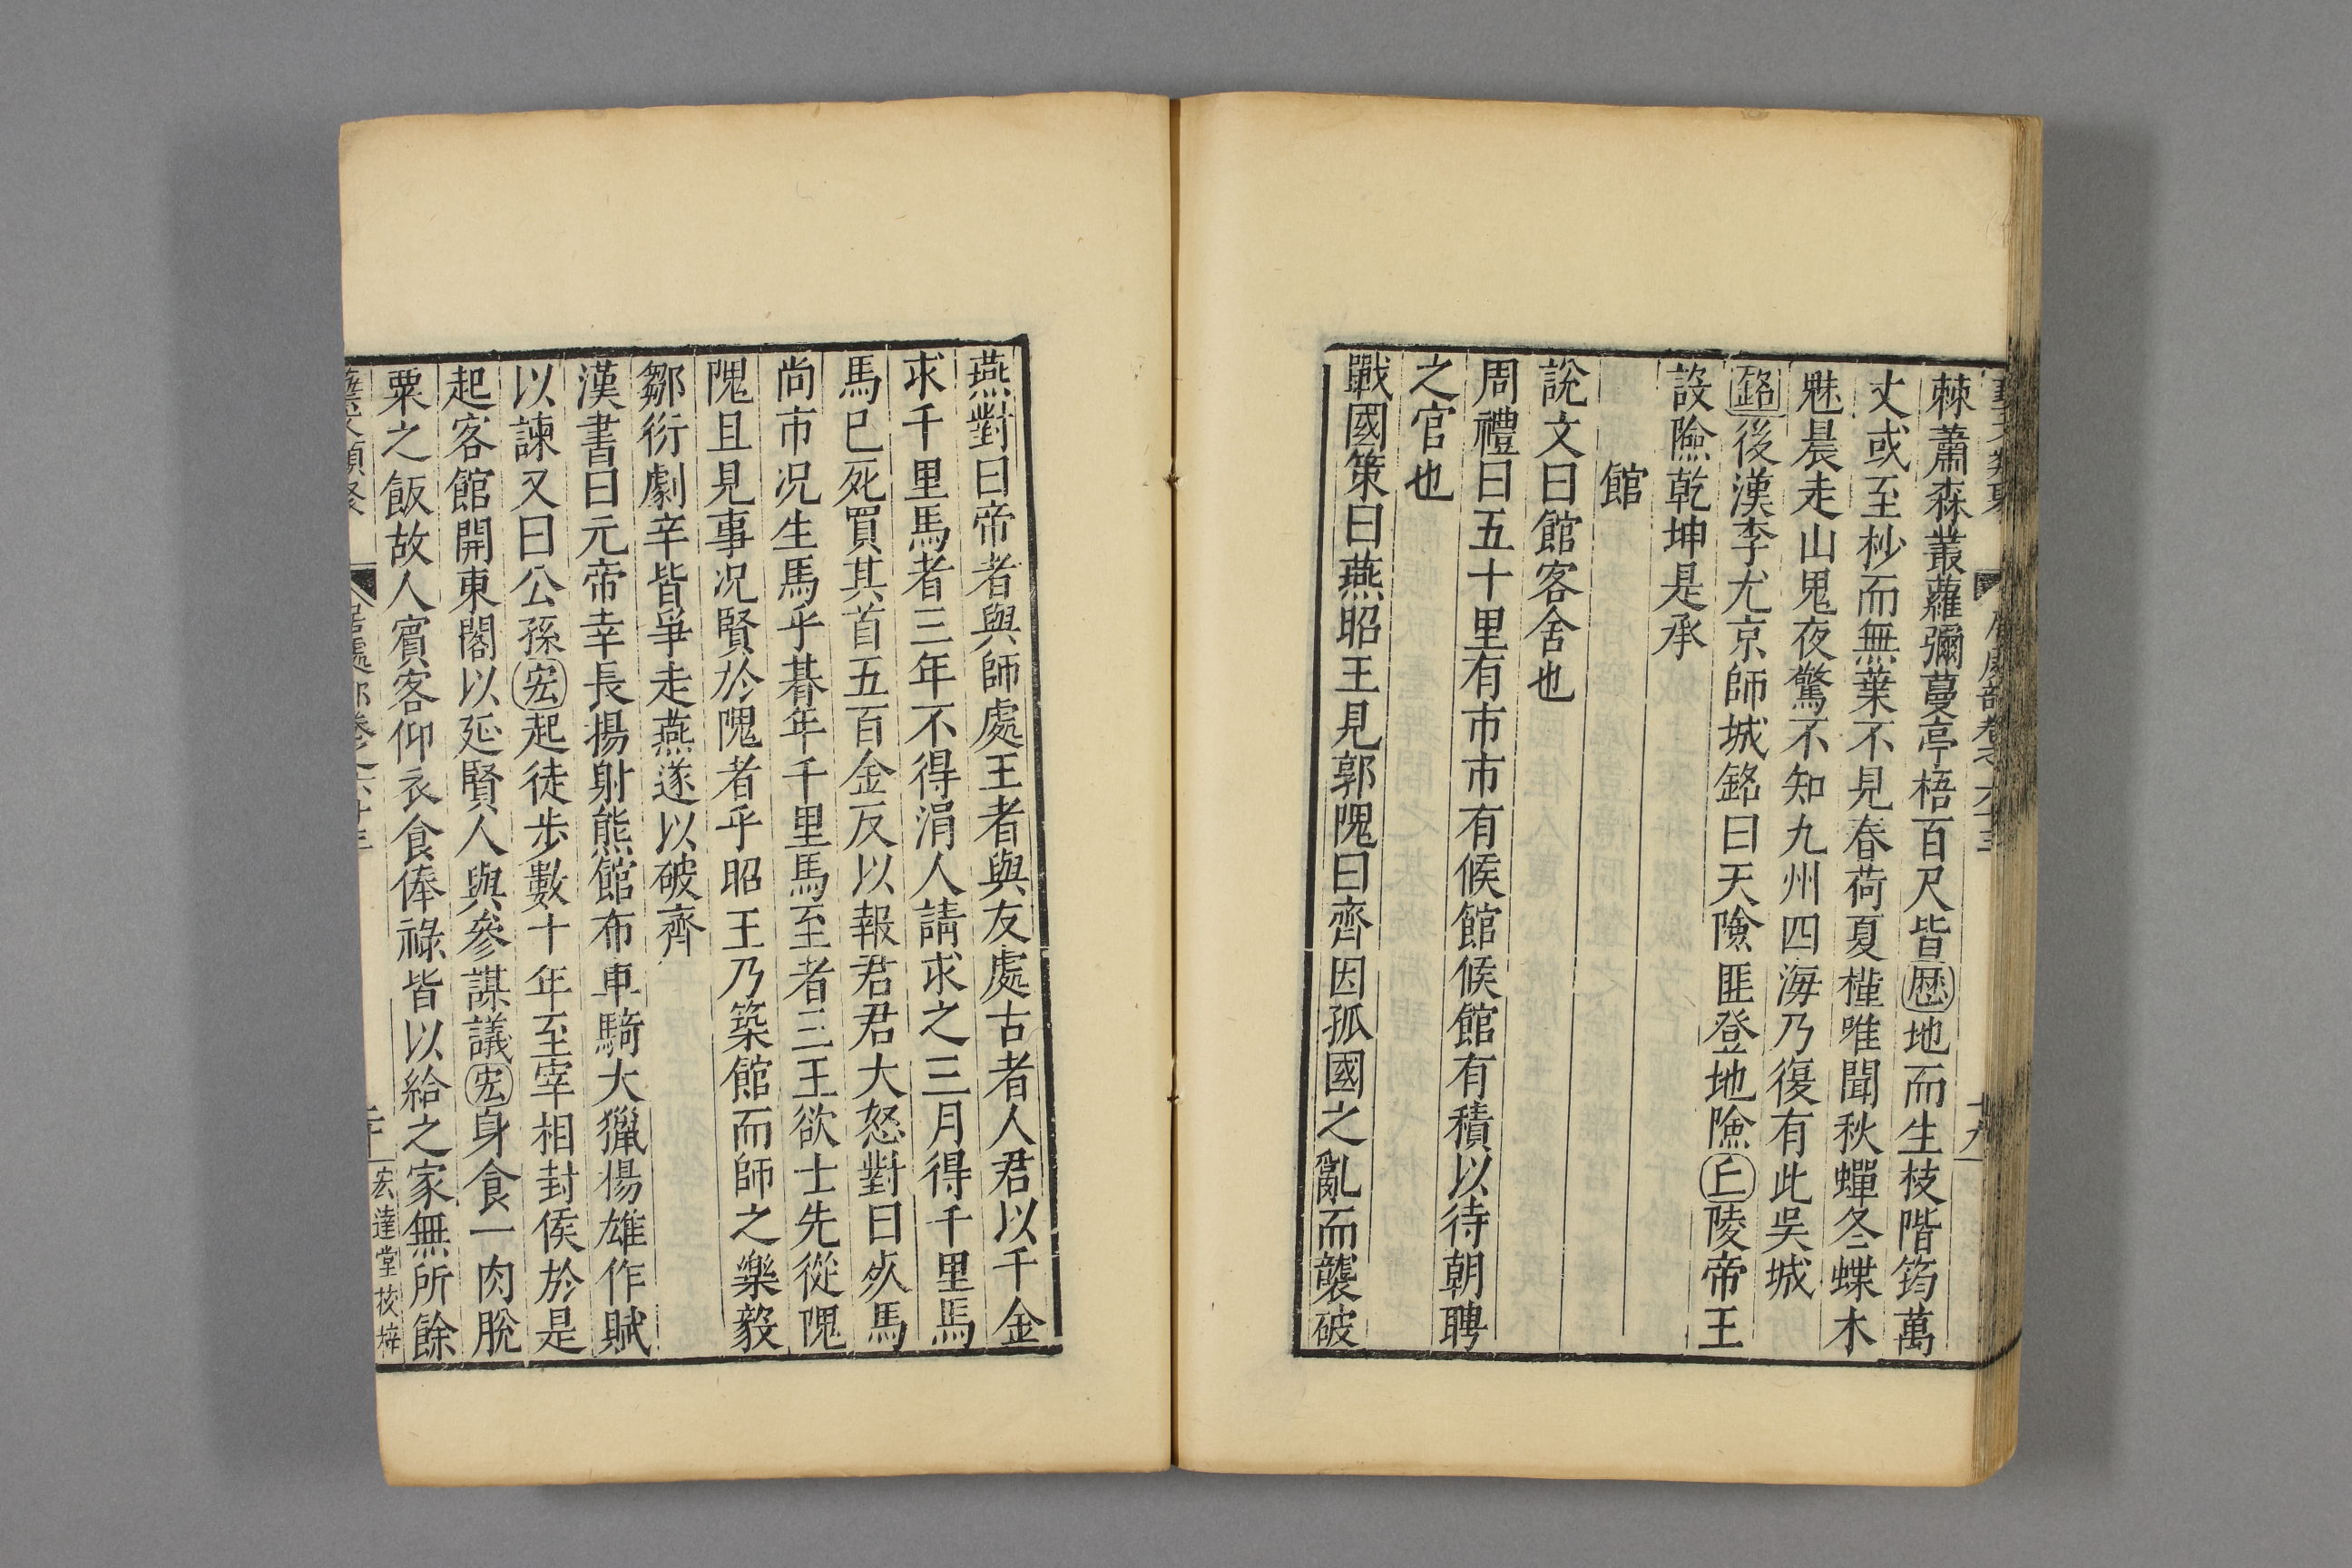 棘蕭森叢蘿彌蔓亭梧百尺皆歷地而生枝階筠萬
丈或至杪而無葉不見春荷夏槿唯聞秋蟬冬蝶木
魅晨走山鬼夜驚不知九州四海乃復有此吳城
銘後漢李尤京師城銘曰天險匪登地險丘陵帝王
設險乾坤是承
館
說文曰館客舍也
周禮曰五十里有市市有候館候館有積以待朝聘
之官也
戰國策曰燕昭王見郭隗曰齊因孤國之亂而襲破
燕對曰帝者與師處王者與友處古者人君以千金
求千里馬者三年不得涓人請求之三月得千里馬
馬已死買其首五百金反以報君君大怒對曰死馬
尚市況生馬乎朞年千里馬至者三王欲士先從隗
隗且見事況賢於隗者乎昭王乃築館而師之樂毅
鄒衍劇辛皆爭走燕遂以破齊
漢書曰元帝幸長揚射熊館布車騎大獵楊雄作賦
以諫又曰公孫宏起徒步數十年至宰相封侯於是
起客館開東閣以延賢人與參謀議宏身食一肉脫
粟之飯故人賓客仰衣食俸祿皆以給之家無所餘
宏達堂校梓